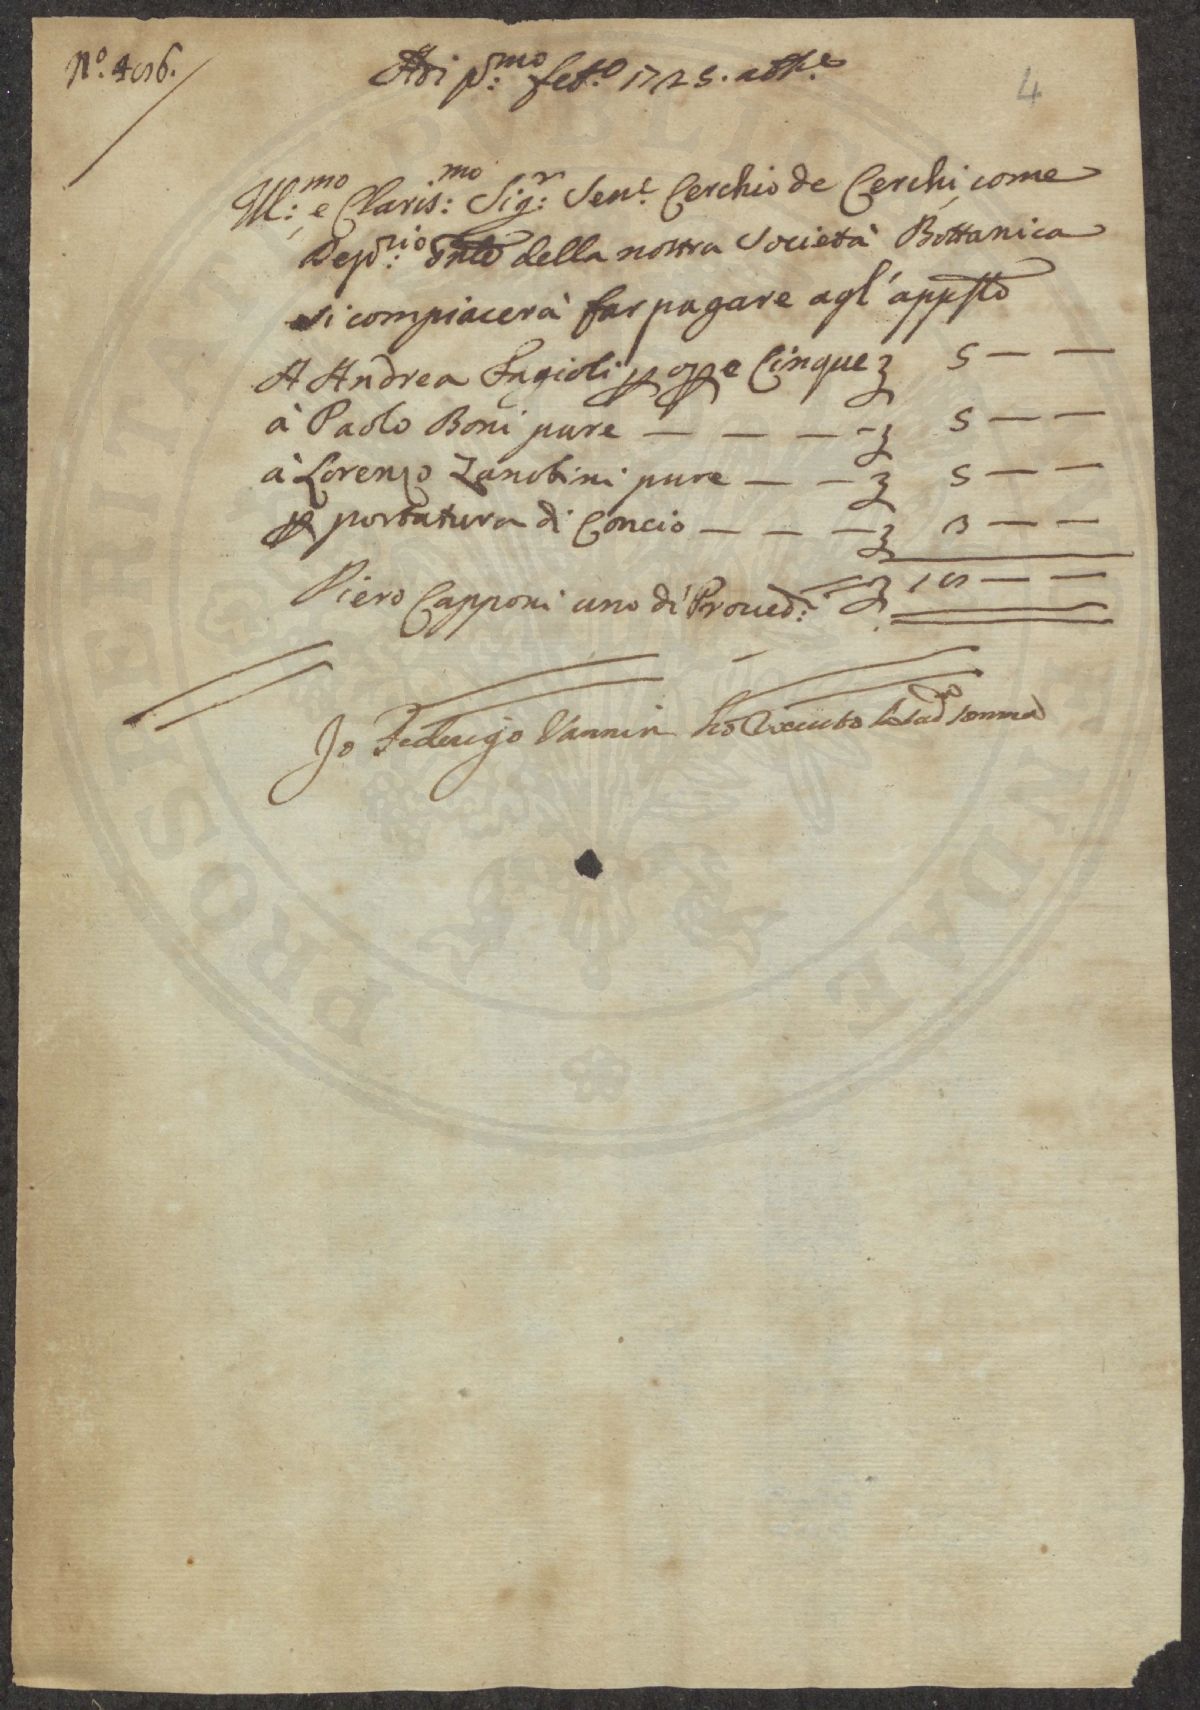 N.º 406.
Adi p.mo feb.º 1725. ab Inc.e
4
Ill.mo e Claris.mo Sig.r Sen.e Cerchio de Cerchi, come
Dep.rio della nostra Società Bottanica
si compiacerà far pagare agl'app.sto
A Andrea Ingioli p opre Cinque 5 — —
à Paolo Boni pure — — — — 5 — —
à Lorenzo Zanobini pure — — 5 — —
p portatura di Concio — — — 3 — —
Piero Capponi uno di Proved.
Io Federigo Vannini hò riceuto la sud.a somma
PROSPERITATI PUBLICAE AUGENDAE